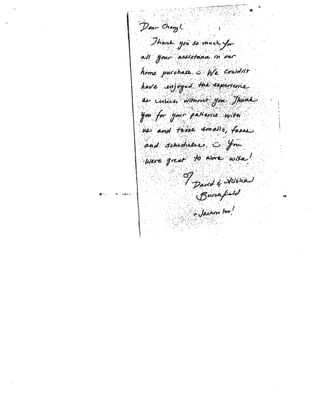 Dear Cheryl,
Thank you so much for
all your assistance in our
home purchase. We couldn't
have enjoyed the experience
as without you. Thank
you for your patience with
us and those emails, faxes
and schedules. You
were great to work with!
David &
+ Jackson too!